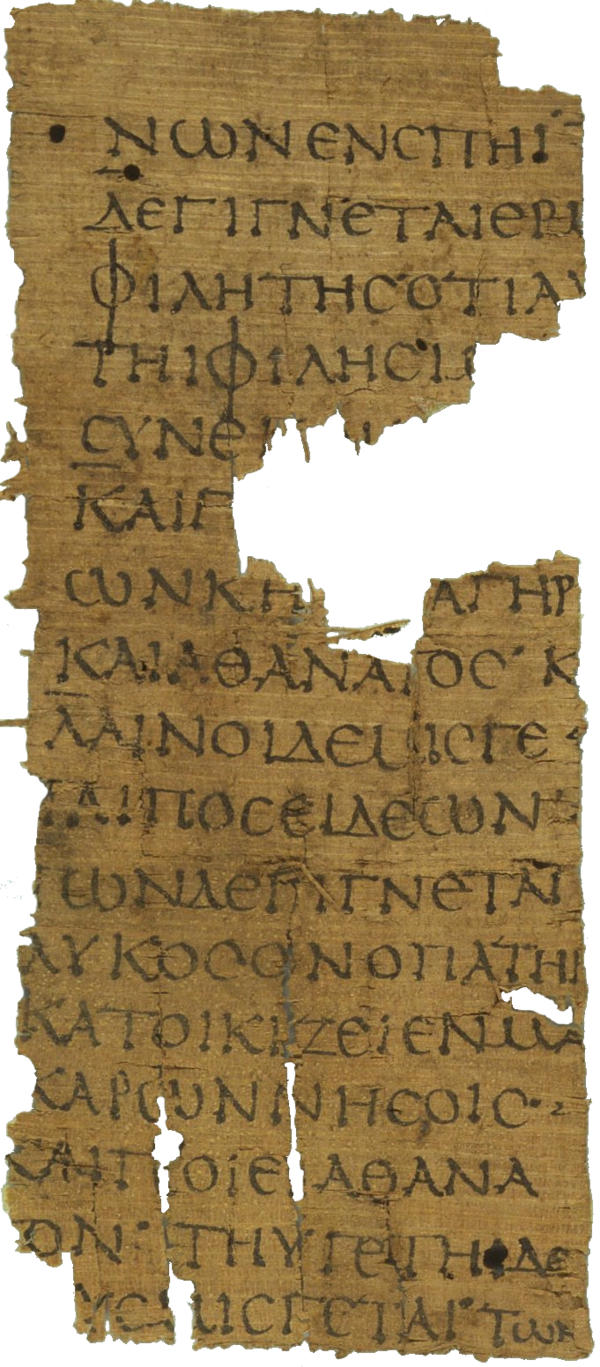 ΝΩΝΕΝϹΠΗΙ
ΔΕΓΙΓΝΕΤΑΙΕΡΜ
ΦΙΛΗΤΗϹΟΤΙΑΥ
ΤΗΙΦΙΛΗϹΙΜ
ϹΥΝΕ
ΚΑΙΓ
ϹΩΝΚΗ ΑΓΗΡ
ΚΑΙΑΘΑΝΑΤΟϹ· Κ
ΛΑΙΝΟΙΔΕΜΙϹΓΕ
ΤΑΙΠΟϹΕΙΔΕΩΝ
ΤΩΝΔΕΓΙΓΝΕΤΑΙ
ΛΥΚΟϹΟΝΟΠΑΤΗΡ
ΚΑΤΟΙΚΙΖΕΙΕΝΜΑ
ΚΑΡΩΝΝΗϹΟΙϹ·
ΚΑΙΠΟΙΕΙΑΘΑΝΑ
ΤΟΝ· ΤΗΥΓΕΤΗΙΔΕ
ΥϹΜΙϹΓΕΤΑΙ· ΤΩΝ